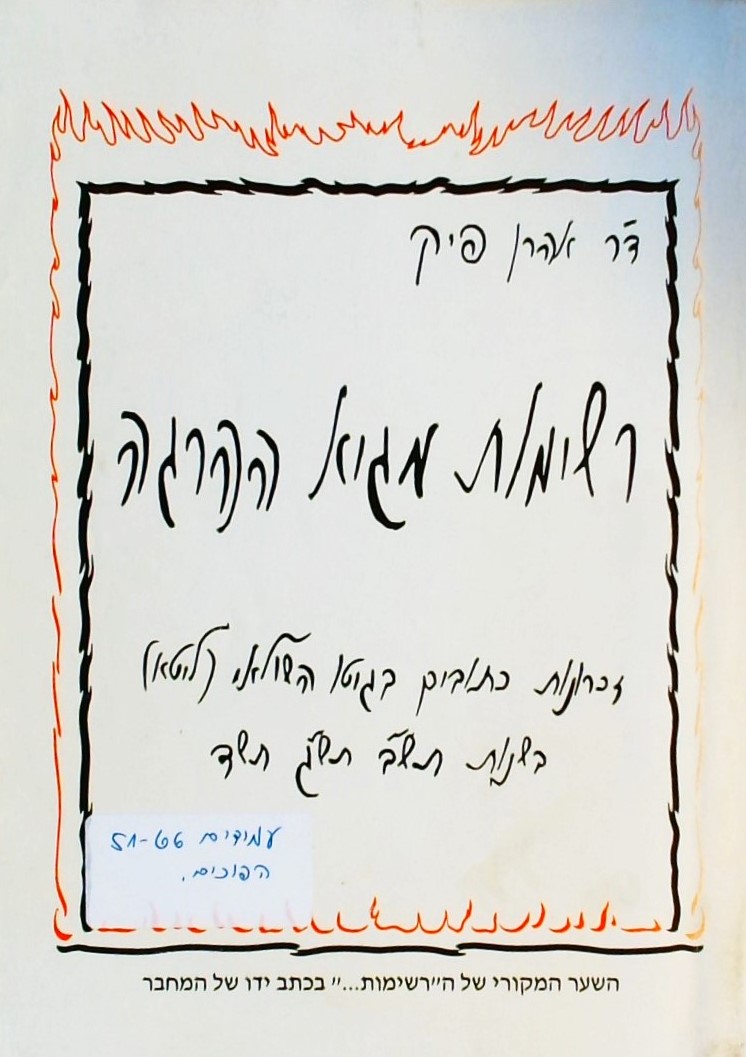 ד״ר אהרן פיק
רשימות מגיא ההרגה
זכרונות כתובים בגיטו השולאי (ליטא)
בשנות תש״ב תש״ג תש״ד
עמודים
הפוכים.
השער המקורי של ה״רשימות...״ בכתב ידו של המחבר